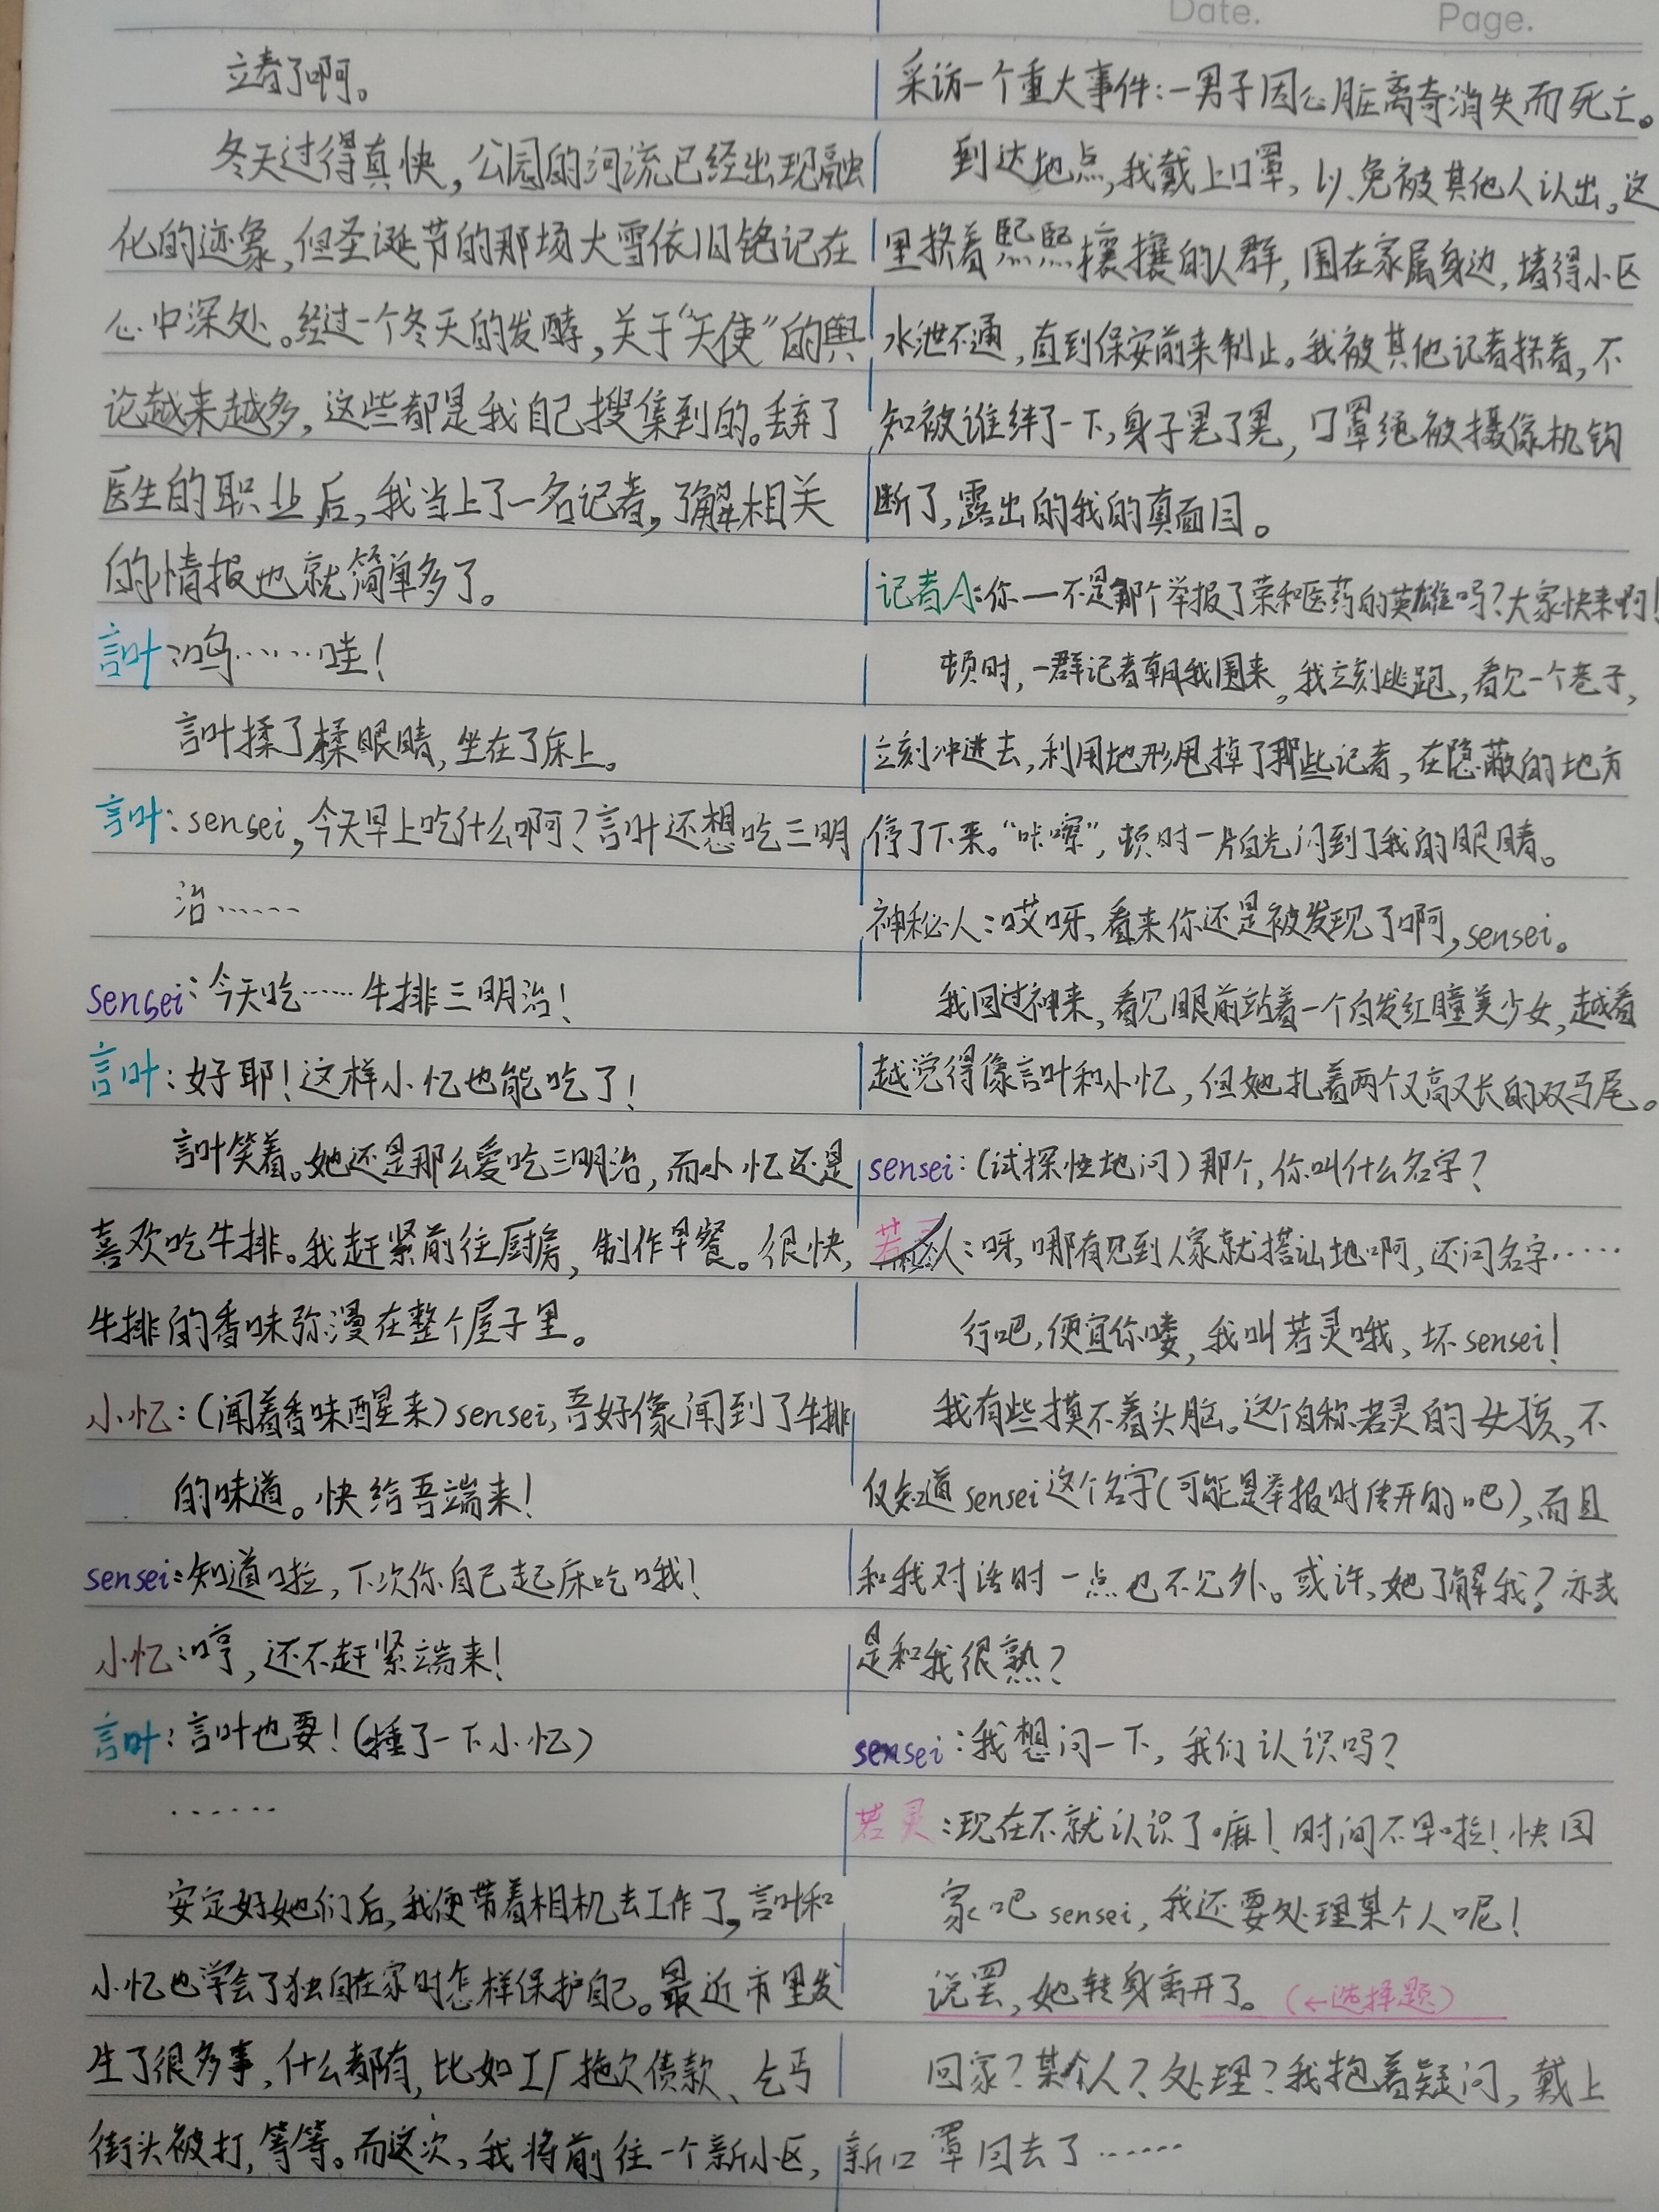 Date.
Page.
立着了啊。
冬天过得真快，公园的河流已经出现融
化的迹象，但圣诞节的那场大雪依旧铭记在
心中深处。经过一个冬天的发酵，关于“天使”的舆
论越来越多，这些都是我自己搜集到的。丢弃了
医生的职业后，我当上了一名记者，了解相关
的情报也就简单多了。
言叶：呜……哇！
言叶揉了揉眼睛，坐在了床上。
言叶：sensei，今天早上吃什么啊？言叶还想吃三明
治……
sensei：今天吃……牛排三明治！
言叶：好耶！这样小忆也能吃了！
言叶笑着。她还是那么爱吃三明治，而小忆还是
喜欢吃牛排。我赶紧前往厨房，制作早餐。很快，
牛排的香味弥漫在整个屋子里。
小忆：（闻着香味醒来）sensei，吾好像闻到了牛排
的味道。快给吾端来！
sensei：知道啦，下次你自己起床吃哦！
小忆：哼，还不赶紧端来！
言叶：言叶也要！（捶了一下小忆）
……
安定好她们后，我便带着相机去工作了，言叶和
小忆也学会了独自在家时怎样保护自己。最近市里发
生了很多事，什么都有，比如工厂拖欠债款、乞丐
街头被打，等等。而这次，我将前往一个新小区，
采访一个重大事件：一男子因心脏离奇消失而死亡。
到达地点，我戴上口罩，以免被其他人认出。这
里挤着熙熙攘攘的人群，围在家属身边，堵得小区
水泄不通，直到保安前来制止。我被其他记者挤着，不
知被谁绊了一下，身子晃了晃，口罩绳被摄像机钩
断了，露出的我的真面目。
记者A：你—不是那个举报了荣和医药的英雄吗？大家快来啊！
顿时，一群记者朝我围来，我立刻逃跑，看见一个巷子，
立刻冲进去，利用地形甩掉了那些记者，在隐蔽的地方
停了下来。“咔嚓”，顿时一片白光闪到了我的眼睛。
神秘人：哎呀，看来你还是被发现了啊，sensei。
我回过神来，看见眼前站着一个白发红瞳美少女，越看
越觉得像言叶和小忆，但她扎着两个又高又长的双马尾。
sensei：（试探性地问）那个，你叫什么名字？
若灵：呀，哪有见到人家就搭讪地啊，还问名字……
行吧，便宜你喽，我叫若灵哦，坏sensei！
我有些摸不着头脑。这个自称若灵的女孩，不
仅知道sensei这个名字（可能是举报时传开的吧），而且
和我对话时一点也不见外。或许，她了解我？亦或
是和我很熟？
sensei：我想问一下，我们认识吗？
若灵：现在不就认识了嘛！时间不早啦！快回
家吧sensei，我还要处理某个人呢！
说罢，她转身离开了。（←选择题）
回家？某个人？处理？我抱着疑问，戴上
新口罩回去了……